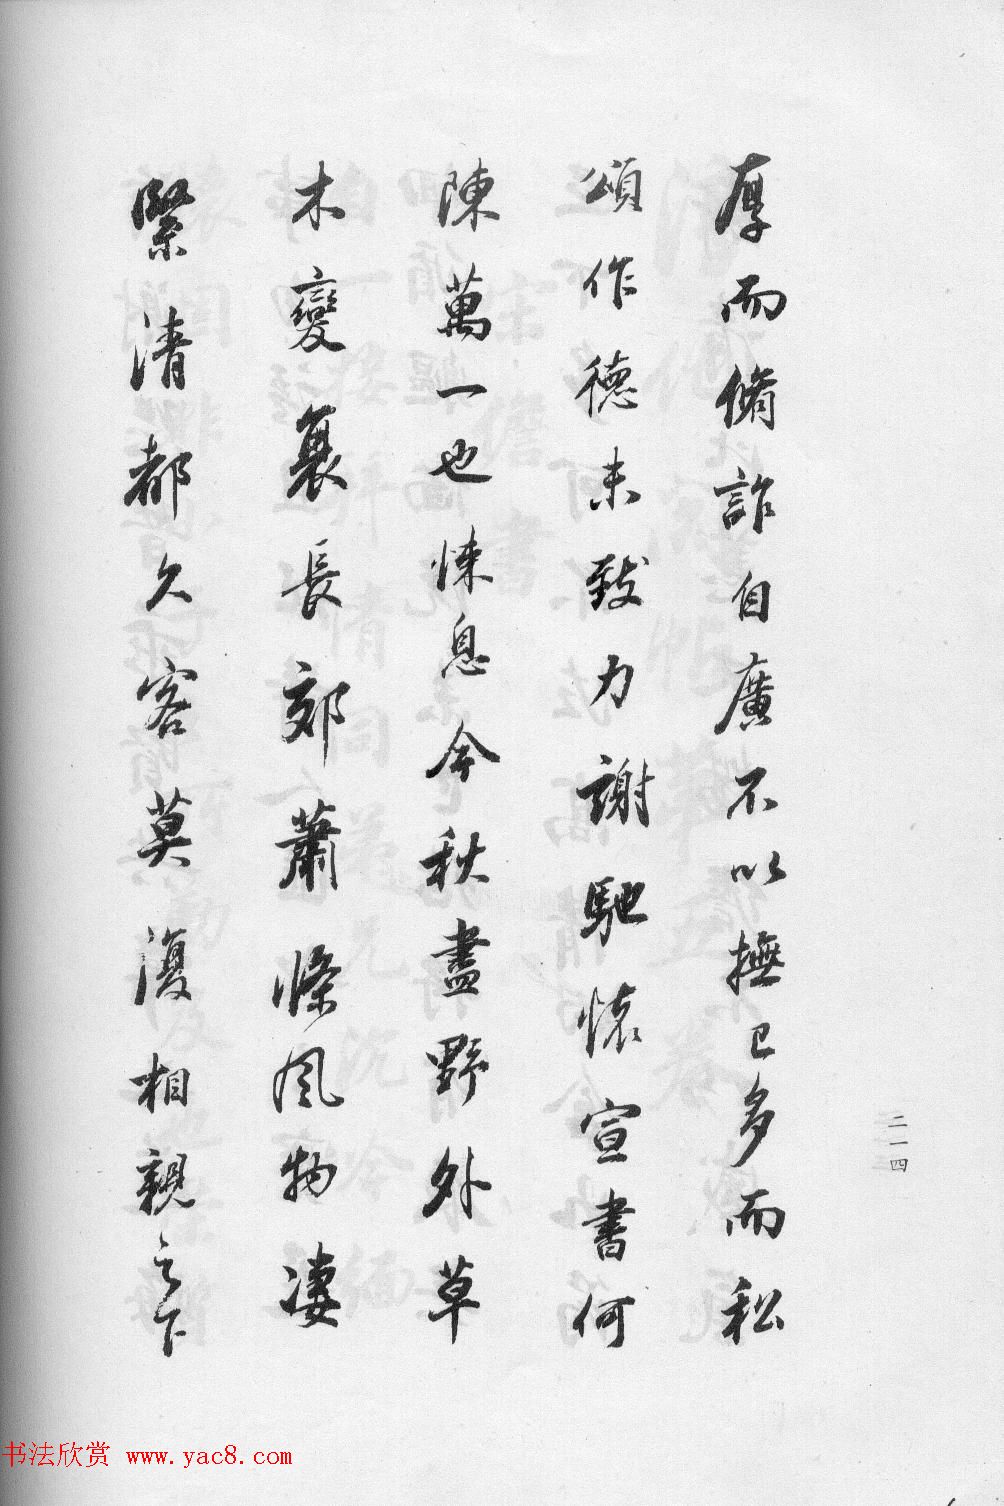 厚而脩詐自廣不以撫己多而私
頌作德未致力謝馳懷宣書何
陳萬一也悚息今秋盡野外草
木變裏長郊蕭條風物淒
緊清都久客莫復相親之下
二一四
书法欣赏 www.yac8.com